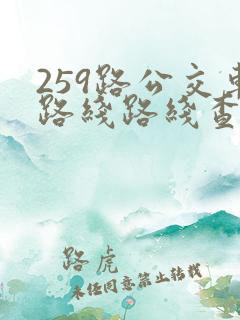 259路公交车
路线路线查
路虎
未经同意禁止转载